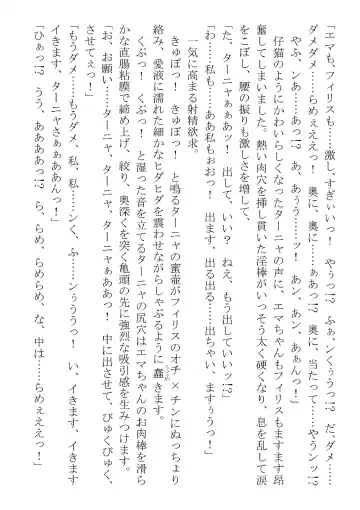 「エマも、フィリスも……激し、すぎいぃっ！　だ、ダメ……
ダメダメ……らめぇええっ！　奥に、奥に……ぁあっ!?　奥に、当たって……やうンッ!?
やふ、ンあ……あっ!?　あ、あぅう……ッ！　あ、あン、あぁんっ！」
仔猫のようにかわいらしくなったターニャの声に、エマちゃんもフィリスもますます昂
奮してしまいました。熱い肉穴を挿し貫いた淫棒がいっそう太く硬くなり、息を乱して涙
をこぼし、腰の振りも激しさを増して、
「た、ターニャぁぁあッ！　出して、いい？　ねえ、もう出していいッ!?」
「わ、私も……ああ私もぉおっ！　出ます、出る出る……出ちゃい、ますぅうっ！」
一気に高まる射精欲求。
きゅぼっ！　きゅぼっ！　と鳴るターニャの蜜壷がフィリスのオチ×チンにぬっちょり
絡み、愛液に濡れた細かなヒダヒダを震わせながらしゃぶるように蠢きます。
くぷっ！　くぷっ！　と湿った音を立てるターニャの尻穴はエマちゃんのお肉棒を滑ら
かな直腸粘膜で締め上げ、絞り、奥深くを突く亀頭の先に強烈な吸引感を生みつけます。
「お、お願い……ターニャ、ターニャ、ターニャぁああっ！　中に出させて、びゅくびゅく、
させてぇっ！」
「もうダメ……もうダメ、私、私……ンく、ふ……ンぅううっ！　い、イきます、イきます
イきます、ターニャさぁぁあんっ！」
「ひぁっ!?　うう、ああああっ!?　ら、らめ、らめらめ、な、中は……らめぇええっ！」